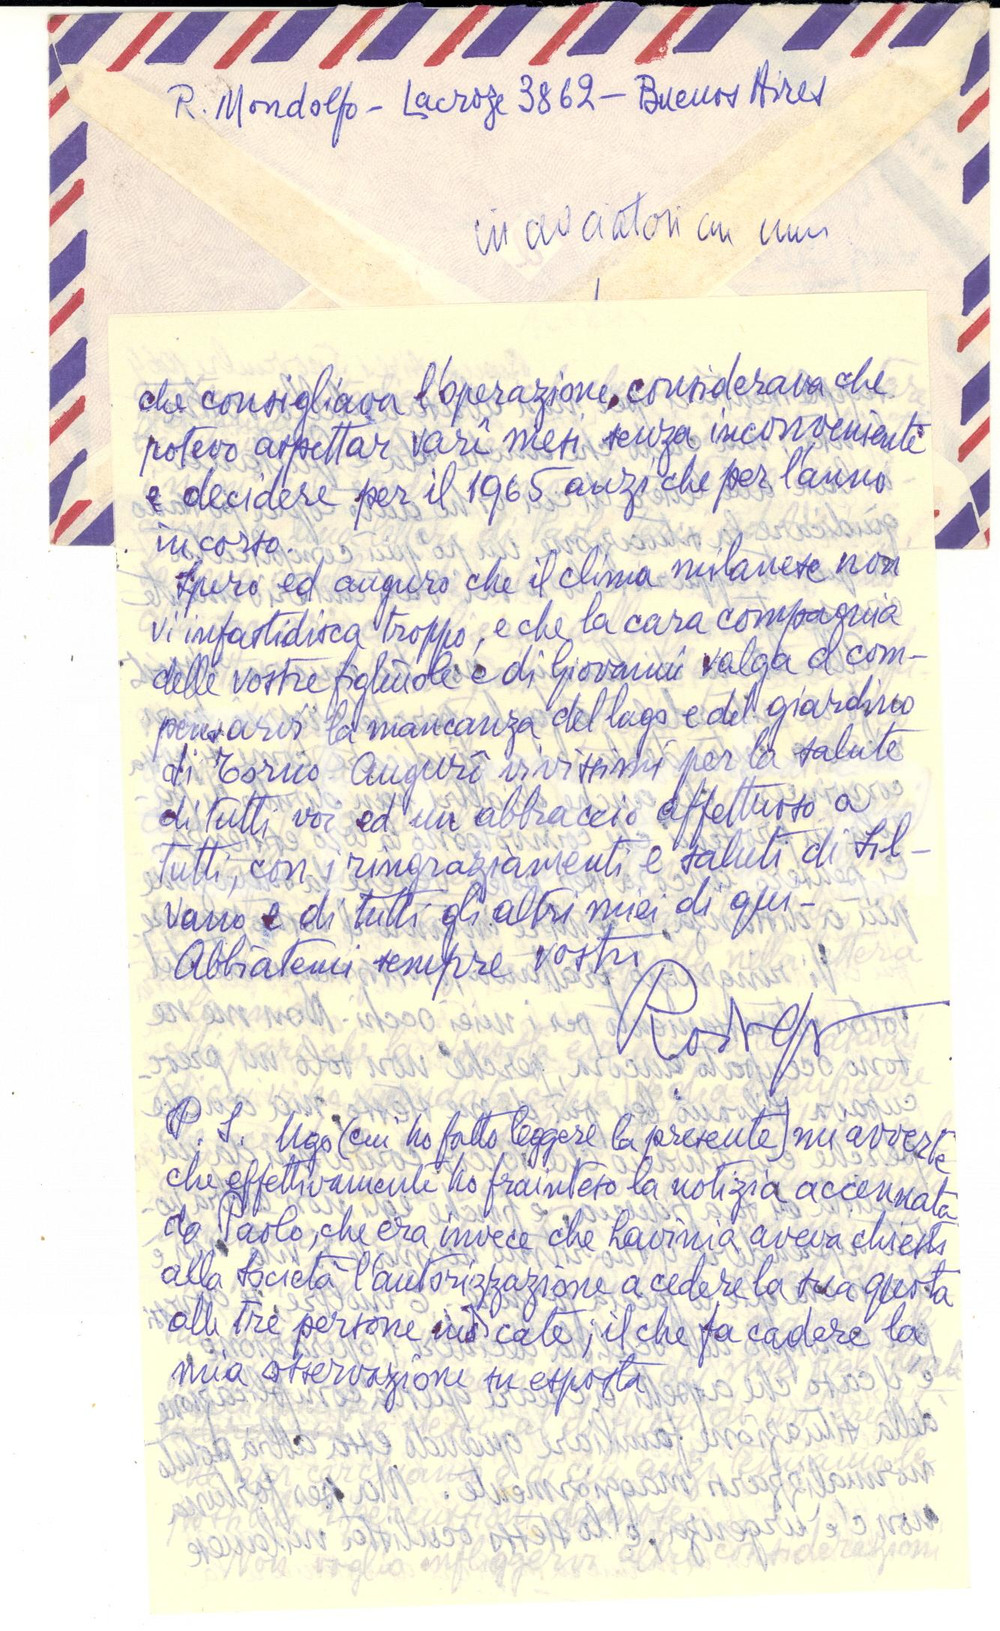 R. Mondolfo - Lacroze 3862 - Buenos Aires
che consigliava l'operazione, considerava che
potevo aspettar varî mesi senza inconvenienti
e decidere per il 1965 anzi che per l'anno
in corso.
Spero ed auguro che il clima milanese non
vi infastidisca troppo, e che la cara compagnia
delle vostre figliuole e di Giovanni valga a com-
pensarvi la mancanza del lago e del giardino
di Torno. Augurî vivissimi per la salute
di tutti voi ed un abbraccio affettuoso a
tutti, con i ringraziamenti e saluti di Sil-
vano e di tutti gli altri miei di qui-
Abbiatemi sempre vostro
Rodolfo
P. S. Ugo (cui ho fatto leggere la presente) mi avverte
che effettivamente ho frainteso la notizia accennata
da Paolo, che era invece che Lavinia aveva chiesto
alla società l'autorizzazione a cedere la sua quota
alle tre persone indicate; il che fa cadere la
mia osservazione su esposta